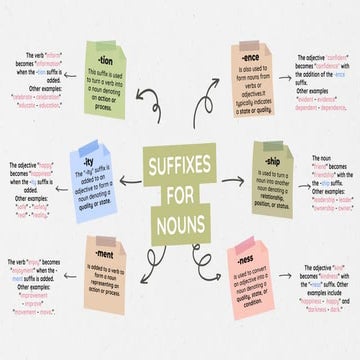 SUFFIXES
FOR
NOUNS
-tion
This suffix is used
to turn a verb into
a noun denoting
an action or
process.
The verb "inform"
becomes "information"
when the -tion suffix is
added.
Other examples:
"celebrate - celebration"
"educate - education."
-ity
The "-ity" suffix is
added to an
adjective to form a
noun denoting a
quality or state.
The adjective "happy"
becomes "happiness"
when the -ity suffix is
added.
Other examples:
"safety"
-ment
Is added to a verb to
form a noun
representing an
action or process.
The verb "enjoy" becomes
"enjoyment" when the -
ment suffix is added.
Other examples:
"improvement
- improve"
"movement - move."
-ence
Is also used to
form nouns from
verbs or
adjectives.It
typically indicates
a state or quality.
The adjective "confident"
becomes "confidence" with
the addition of the -ence
suffix.
Other examples
"evident - evidence"
"dependent - dependence."
-ship
Is used to turn a
noun into another
noun denoting a
relationship,
position, or status.
The noun
"friend" becomes
"friendship" with
the -ship suffix.
Other examples:
"leadership - leader"
"ownership - owner."
-ness
Is used to convert
an adjective into a
noun denoting a
quality, state, or
condition.
The adjective "kind"
becomes "kindness" with
the "-ness" suffix. Other
examples include
"happiness - happy" and
"darkness - dark."